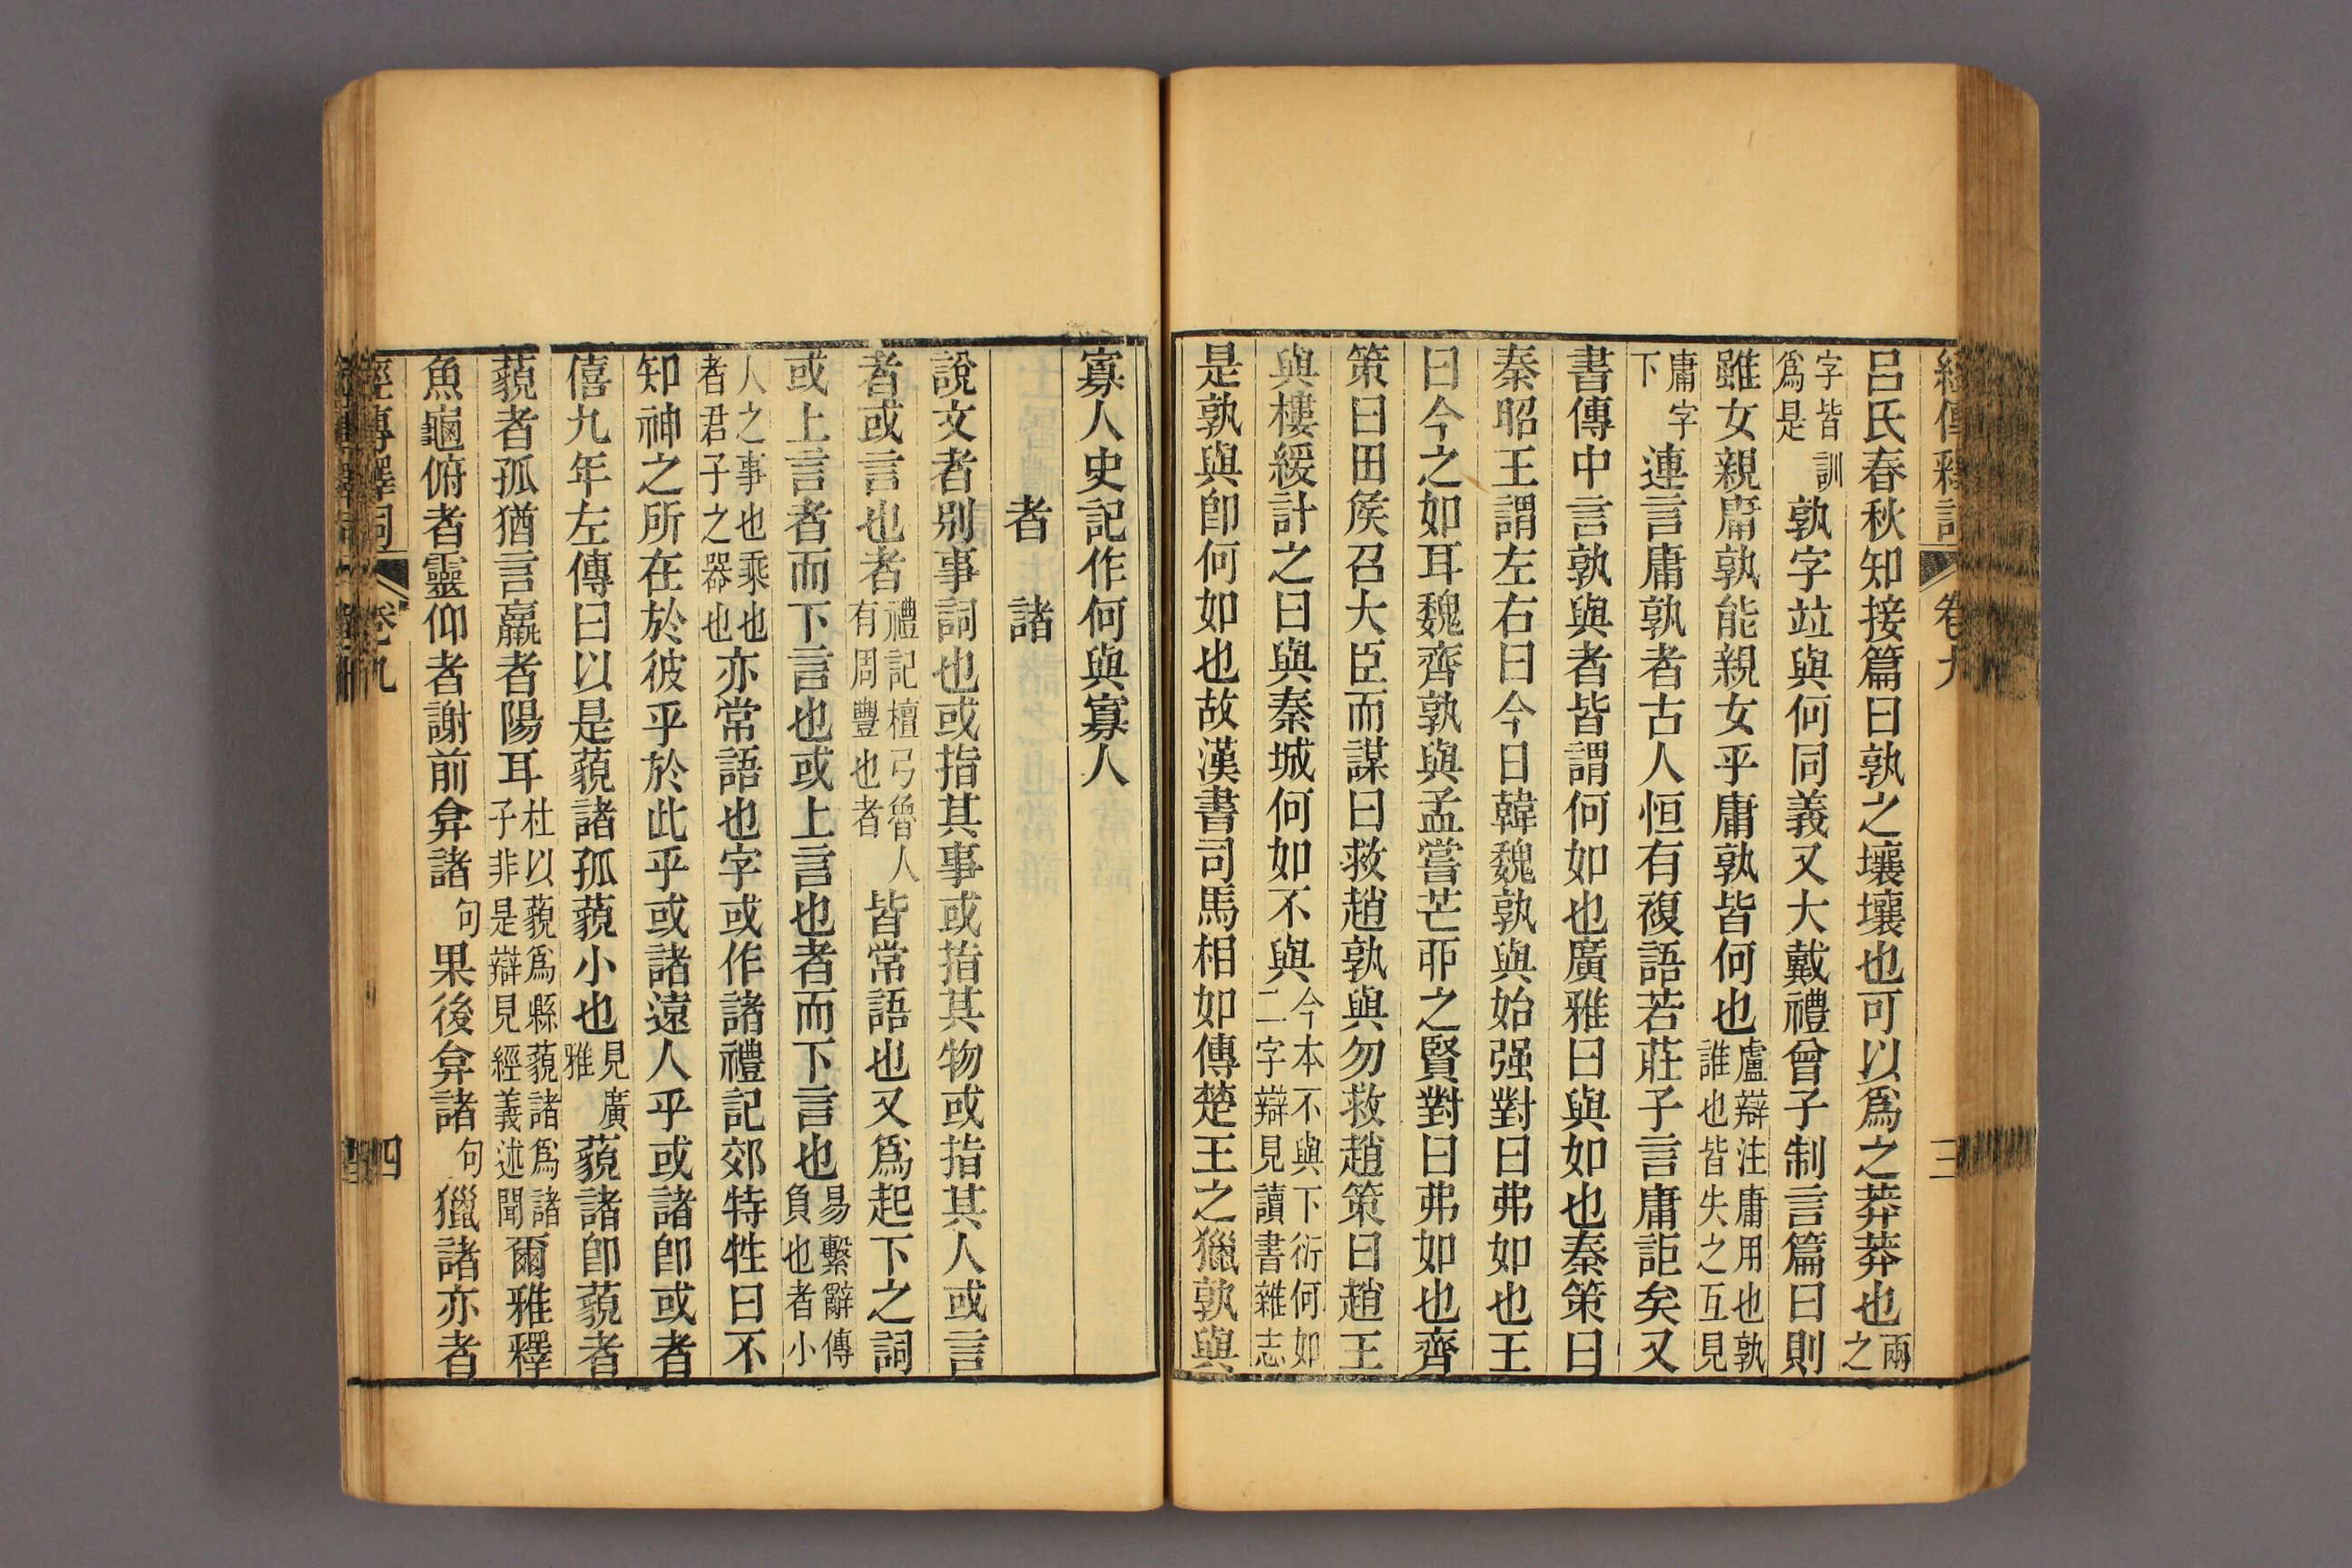 經傳釋詞 卷九 三
呂氏春秋知接篇曰孰之壤壤也可以爲之莽莽也兩之
字皆訓爲是孰字竝與何同義又大戴禮曾子制言篇曰則
雖女親庸孰能親女乎庸孰皆何也盧辯注庸用也孰誰也皆失之互見
庸字下連言庸孰者古人恒有複語若莊子言庸詎矣又
書傳中言孰與者皆謂何如也廣雅曰與如也秦策曰
秦昭王謂左右曰今日韓魏孰與始强對曰弗如也王
曰今之如耳魏齊孰與孟嘗芒卯之賢對曰弗如也齊
策曰田侯召大臣而謀曰救趙孰與勿救趙策曰趙王
與樓緩計之曰與秦城何如不與今本不與下衍何如二字辯見讀書雜志
是孰與卽何如也故漢書司馬相如傳楚王之獵孰與
寡人史記作何與寡人
者 諸
說文者別事詞也或指其事或指其物或指其人或言
者或言也者禮記檀弓魯人有周豐也者皆常語也又爲起下之詞
或上言者而下言也或上言也者而下言也易繫辭傳負也者小
人之事也乘也者君子之器也亦常語也字或作諸禮記郊特牲曰不
知神之所在於彼乎於此乎或諸遠人乎或諸卽或者
僖九年左傳曰以是藐諸孤藐小也見廣雅藐諸卽藐者
藐者孤猶言羸者陽耳杜以藐爲縣藐諸爲諸子非是辯見經義述聞爾雅釋
魚龜俯者靈仰者謝前弇諸句果後弇諸句獵諸亦者
經傳釋詞 卷九 四